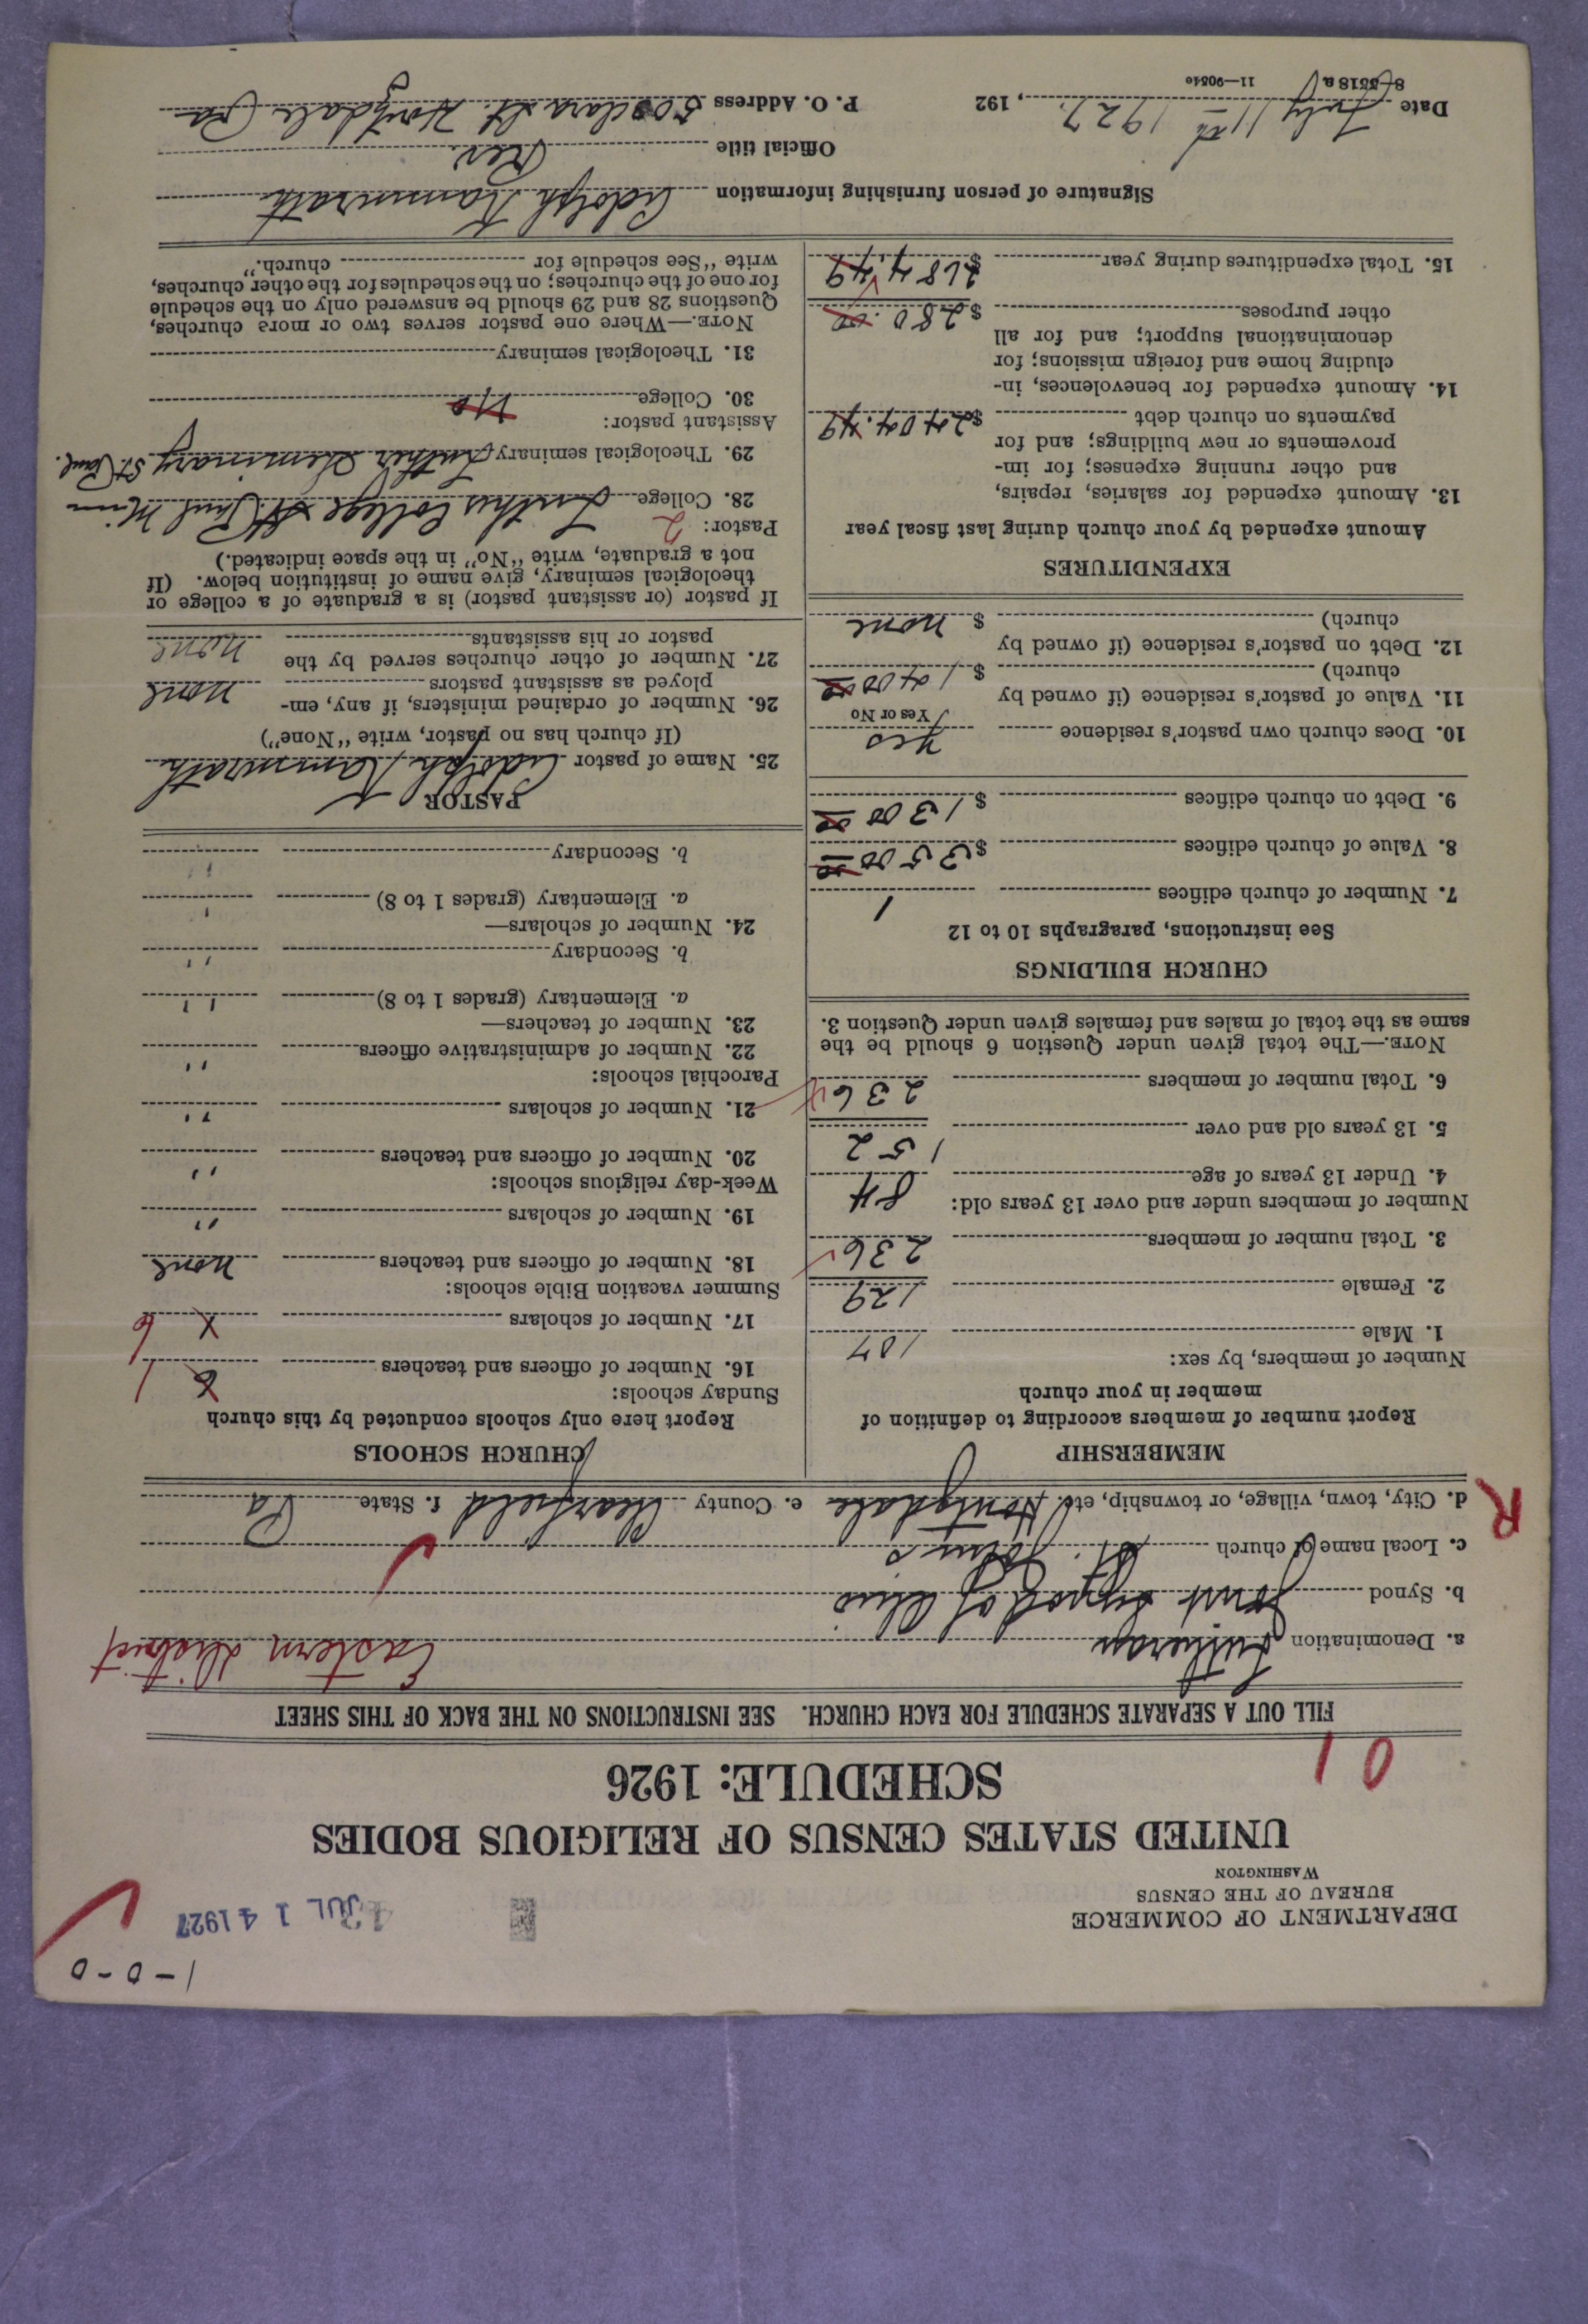 1-0-0
DEPARTMENT OF COMMERCE
BUREAU OF THE CENSUS
WASHINGTON
JUL 14 1927
UNITED STATES CENSUS OF RELIGIOUS BODIES
SCHEDULE: 1926
01
FILL OUT A SEPARATE SCHEDULE FOR EACH CHURCH. SEE INSTRUCTIONS ON THE BACK OF THIS SHEET
a. Denomination Lutheran Eastern District
b. Synod Joint Synod of Ohio
c. Local name of church St. John's
d. City, town, village, or township, etc. Houtzdale e. County Clearfield f. State Pa
R
MEMBERSHIP
Report number of members according to definition of
member in your church
Number of members, by sex:
1. Male 107
2. Female 129
3. Total number of members 236
Number of members under and over 13 years old:
4. Under 13 years of age 84
5. 13 years old and over 152
6. Total number of members 236
NOTE.—The total given under Question 6 should be the
same as the total of males and females given under Question 3.
CHURCH BUILDINGS
See instructions, paragraphs 10 to 12
7. Number of church edifices 1
8. Value of church edifices $3500 00
9. Debt on church edifices $1300 00
10. Does church own pastor's residence Yes
Yes or No
11. Value of pastor's residence (if owned by
church) $1400 00
12. Debt on pastor's residence (if owned by
church) $ none
EXPENDITURES
Amount expended by your church during last fiscal year
13. Amount expended for salaries, repairs,
and other running expenses; for im-
provements or new buildings; and for
payments on church debt $2404.49
14. Amount expended for benevolences, in-
cluding home and foreign missions; for
denominational support; and for all
other purposes $280.00
15. Total expenditures during year $2684.49
CHURCH SCHOOLS
Report here only schools conducted by this church
Sunday schools:
16. Number of officers and teachers 6 1
17. Number of scholars 6
Summer vacation Bible schools:
18. Number of officers and teachers none
19. Number of scholars "
Week-day religious schools:
20. Number of officers and teachers "
21. Number of scholars "
Parochial schools:
22. Number of administrative officers "
23. Number of teachers—
a. Elementary (grades 1 to 8) "
b. Secondary "
24. Number of scholars—
a. Elementary (grades 1 to 8) "
b. Secondary "
PASTOR
25. Name of pastor Adolph Kammrath
(If church has no pastor, write "None")
26. Number of ordained ministers, if any, em-
ployed as assistant pastors none
27. Number of other churches served by the
pastor or his assistants none
If pastor (or assistant pastor) is a graduate of a college or
theological seminary, give name of institution below. (If
not a graduate, write "No" in the space indicated.)
Pastor: 2
28. College Luther College St. Paul Minn
29. Theological seminary Luther Seminary St. Paul.
Assistant pastor:
30. College No
31. Theological seminary
NOTE.—Where one pastor serves two or more churches,
Questions 28 and 29 should be answered only on the schedule
for one of the churches; on the schedules for the other churches,
write "See schedule for church."
Signature of person furnishing information Adolph Kammrath
Official title Rev.
Date July 11th 1927, 192 P. O. Address 500 Clara St. Houtzdale Pa
8-5518a 11—9051c